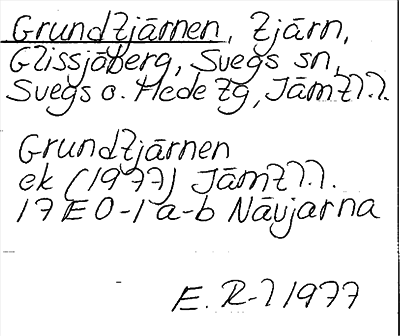 Grundtjärnen, tjärn,
Glissjöberg, Svegs sn,
Svegs o. Hede tg, Jämtl.l.
Grundtjärnen
ek (1977) Jämtl.l.
17E 0-1 a-b Nävjarna
E. R-l 1977